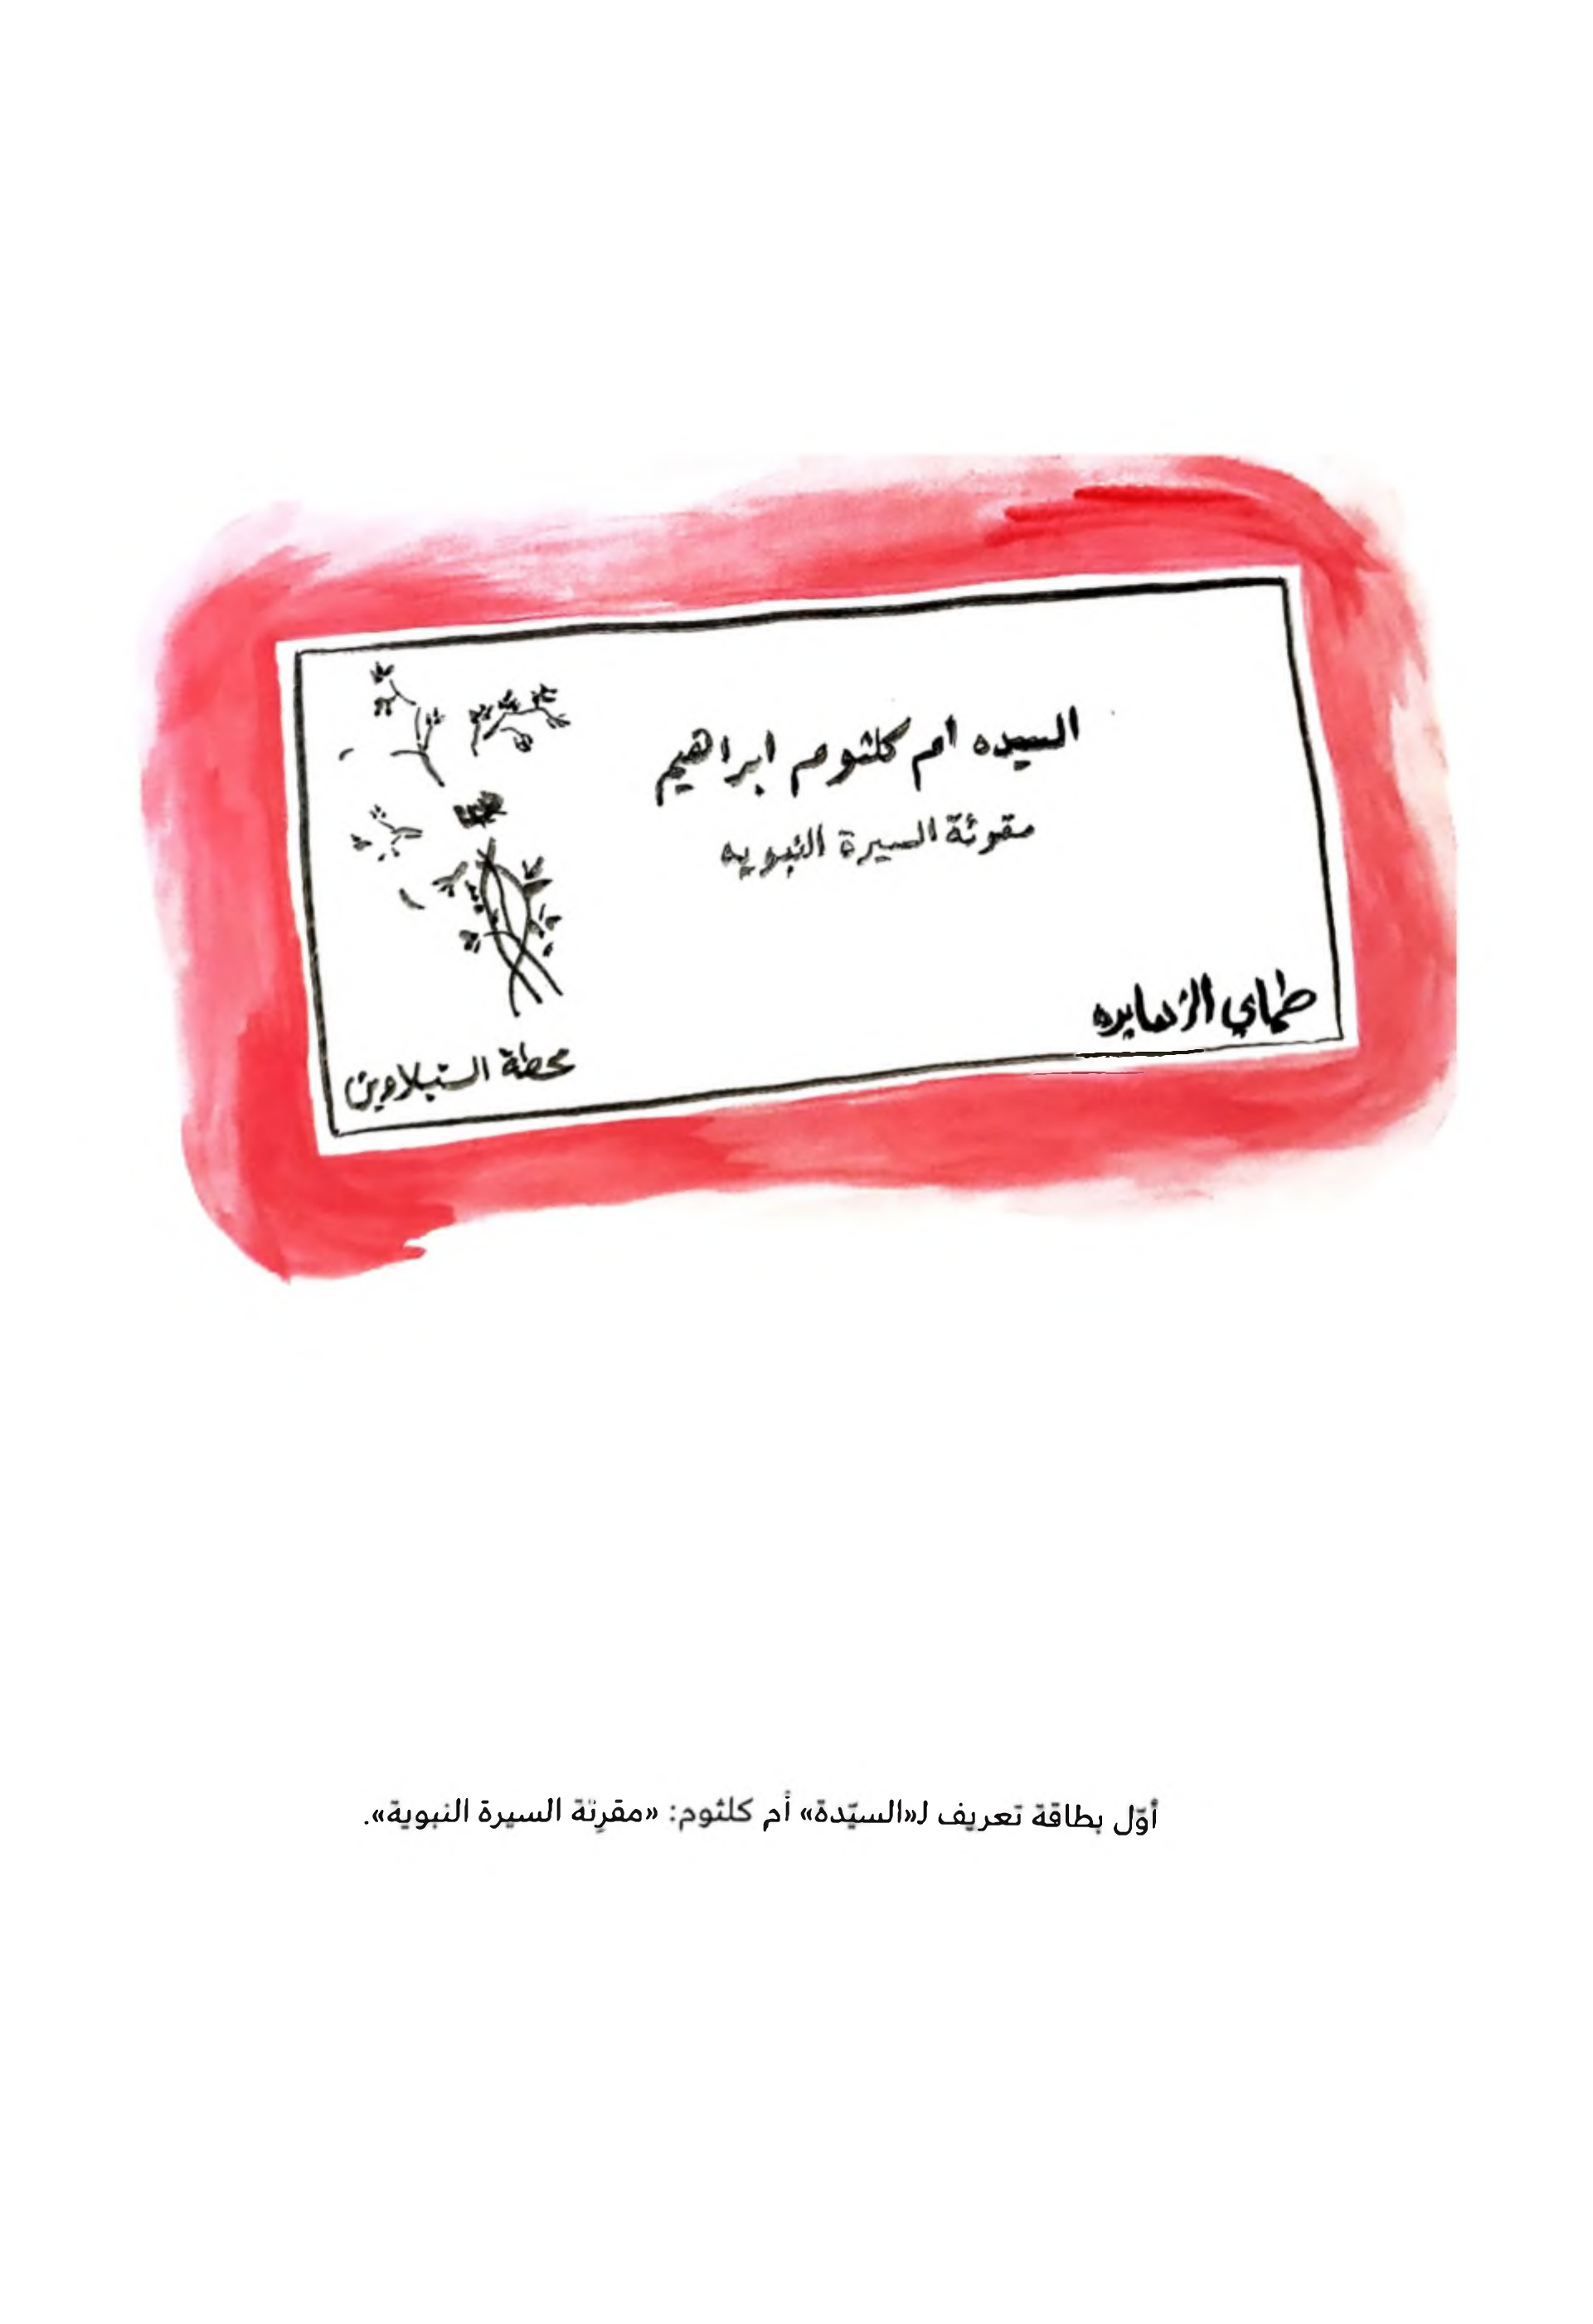 السيده ام كلثوم ابراهيم
مقرئة السيرة النبويه
طماي الزهايره
محطة السنبلاوين
أوّل بطاقة تعريف لـ«السيّدة» أم كلثوم: «مقرِئة السيرة النبوية».